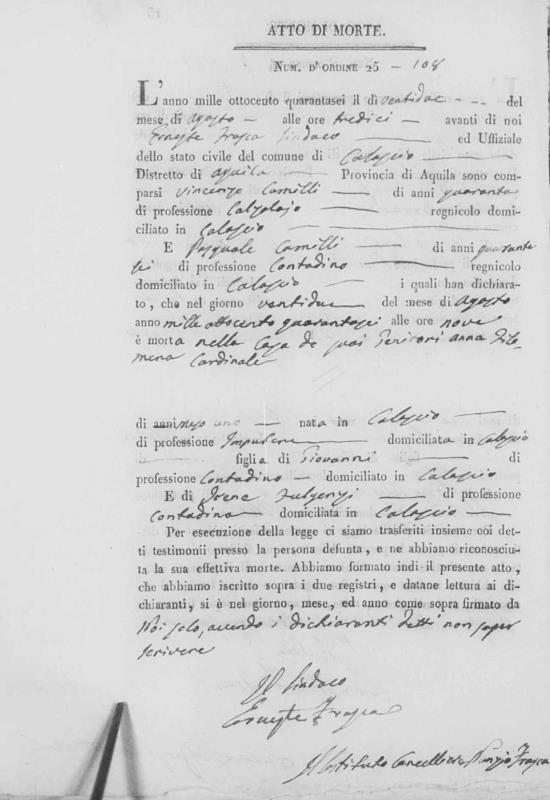 ATTO DI MORTE.
NUM. D'ORDINE 25 — 108
L'anno mille ottocento quarantasei il dì ventidue --- del
mese di agosto — alle ore tredici — avanti di noi
Erneste Frasca Sindaco — ed Uffiziale
dello stato civile del comune di Calascio —
Distretto di aquila — Provincia di Aquila sono com-
parsi Vincenzo Camilli — di anni quaranta
di professione Calzolajo — regnicolo domi-
ciliato in Calascio —
E Pasquale Camilli — di anni quaranta
sei di professione Contadino — regnicolo
domiciliato in Calascio — i quali han dichiara-
to, che nel giorno ventidue — del mese di Agosto
anno mille ottocento quarantasei alle ore nove
è morta nella Casa de suoi Genitori anna Filo-
mena Cardinale
di anni mese uno — nata in Calascio —
di professione Impubere — domiciliata in Calascio
— figlia di Giovanni — di
professione Contadino — domiciliato in Calascio
E di Irene Fulgenzi — di professione
Contadina — domiciliata in Calascio —
Per esecuzione della legge ci siamo trasferiti insieme coi det-
ti testimonii presso la persona defunta, e ne abbiamo riconosciu-
ta la sua effettiva morte. Abbiamo formato indi il presente atto,
che abbiamo iscritto sopra i due registri, e datane lettura ai di-
chiaranti, si è nel giorno, mese, ed anno come sopra firmato da
Noi solo, avendo i dichiaranti detti non saper
scrivere
Il Sindaco
Erneste Frasca
Il Sostituto Cancelliere Nunzio Frasca